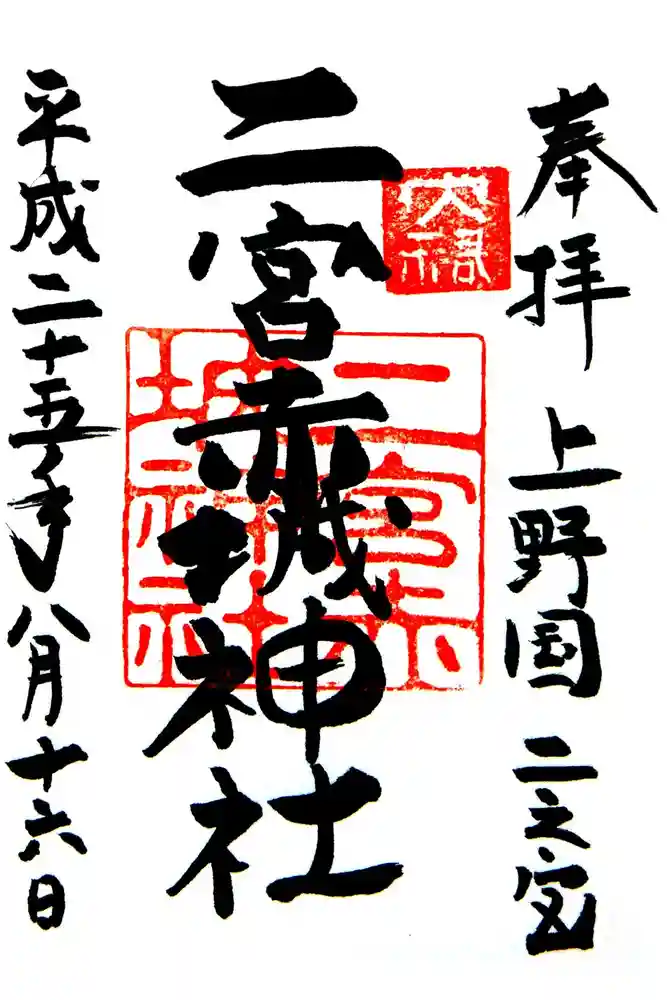 奉拝 上野国 二之宮
大福
二宮赤城神社
二宮赤城神社
平成二十五年八月十六日